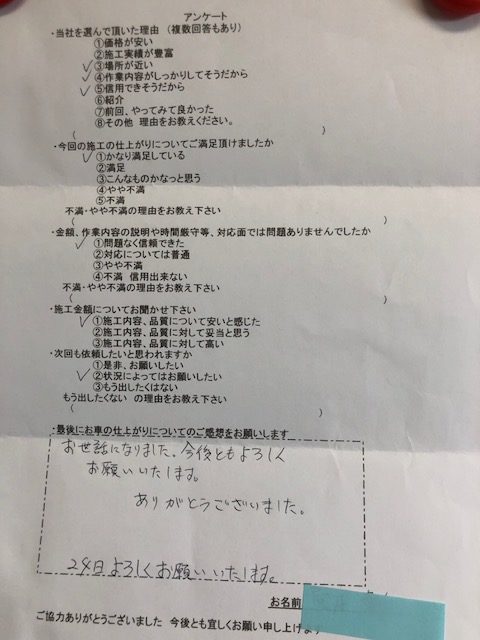 アンケート
・当社を選んで頂いた理由 (複数回答もあり)
①価格が安い
②施工実績が豊富
✓③場所が近い
✓④作業内容がしっかりしてそうだから
✓⑤信用できそうだから
⑥紹介
⑦前回、やってみて良かった
⑧その他 理由をお教えください。
( )
・今回の施工の仕上がりについてご満足頂けましたか
✓①かなり満足している
②満足
③こんなものかなっと思う
④やや不満
⑤不満
不満・やや不満の理由をお教え下さい
( )
・金額、作業内容の説明や時間厳守等、対応面では問題ありませんでしたか
✓①問題なく信頼できた
②対応については普通
③やや不満
④不満 信用出来ない
不満・やや不満の理由をお教え下さい
( )
・施工金額についてお聞かせ下さい
✓①施工内容、品質について安いと感じた
②施工内容、品質に対して妥当と思う
③施工内容、品質に対して高い
・次回も依頼したいと思われますか
①是非、お願いしたい
✓②状況によってはお願いしたい
③もう出したくはない
もう出したくない の理由をお教え下さい
( )
・最後にお車の仕上がりについてのご感想をお願いします
お世話になりました、今後ともよろしく
お願いいたします。
ありがとうございました。
24日よろしくお願いいたします。
お名前
ご協力ありがとうございました 今後とも宜しくお願い申し上げ